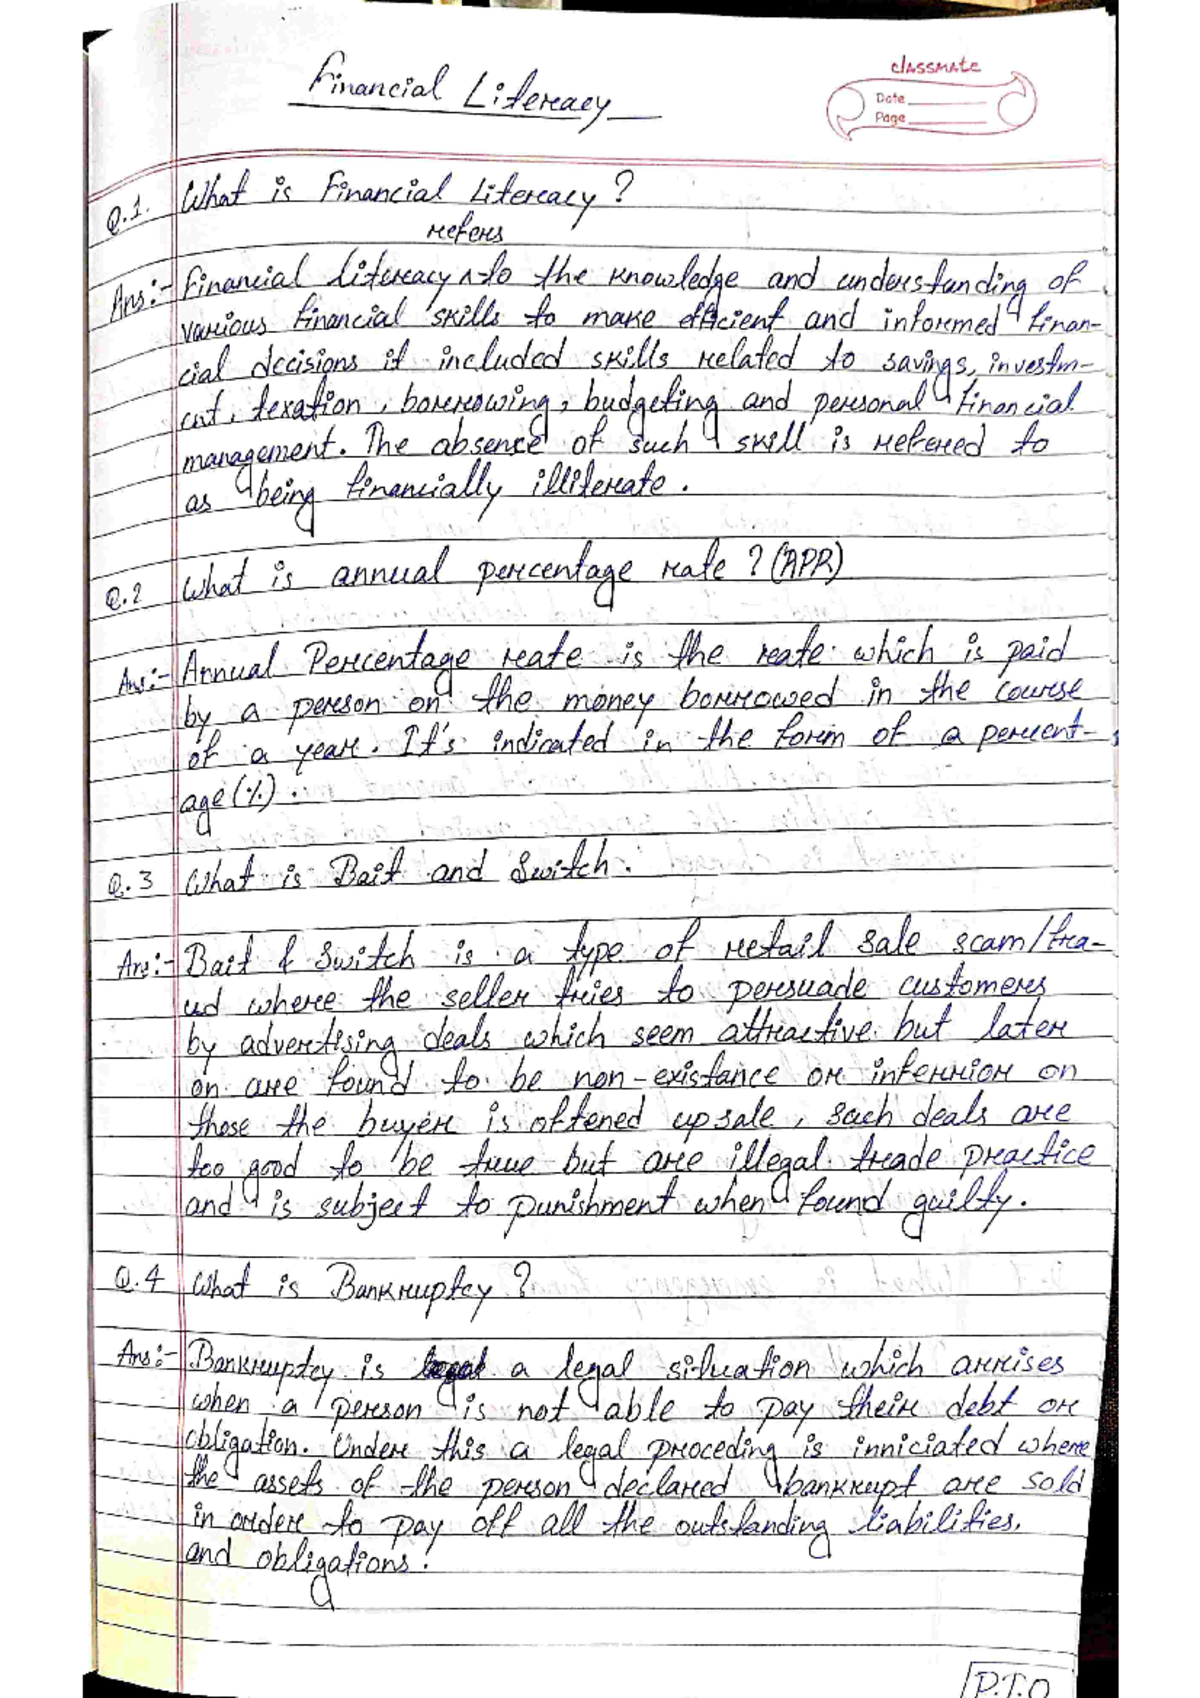 Financial Literacy
classmate
Date
Page
Q.1. What is Financial Literacy?
refers
Ans:- Financial literacy ^ to the knowledge and understanding of
various financial skills to make efficient and informed finan-
cial decisions it included skills related to savings, investm-
ent, texation, borrowing, budgeting and personal financial
management. The absence of such skill is refered to
as being financially illiterate.
Q.2 What is annual percentage rate? (APR)
Ans:- Annual Percentage reate is the reate which is paid
by a person on the money borrowed in the course
of a year. It's indicated in the form of a percent-
age(%).
Q.3 What is Bait and Switch.
Ans:- Bait & Switch is a type of retail sale scam/fra-
ud where the seller tries to persuade customers
by advertising deals which seem attractive but later
on are found to be non-existance or inferrior on
those the buyer is oftened upsale, such deals are
too good to be true but are illegal trade practice
and is subject to punishment when found guilty.
Q.4 What is Bankruptcy?
Ans:- Bankruptcy is a legal situation which arrises
when a person is not able to pay their debt or
obligation. Under this a legal proceding is inniciated where
the assets of the person declared bankrupt are sold
in order to pay off all the outstanding liabilities.
and obligations.
P.T.O